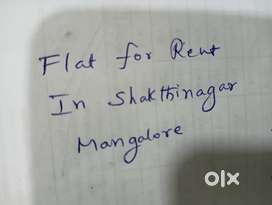 Flat for Rent
In Shakthinagar
Mangalore
olx